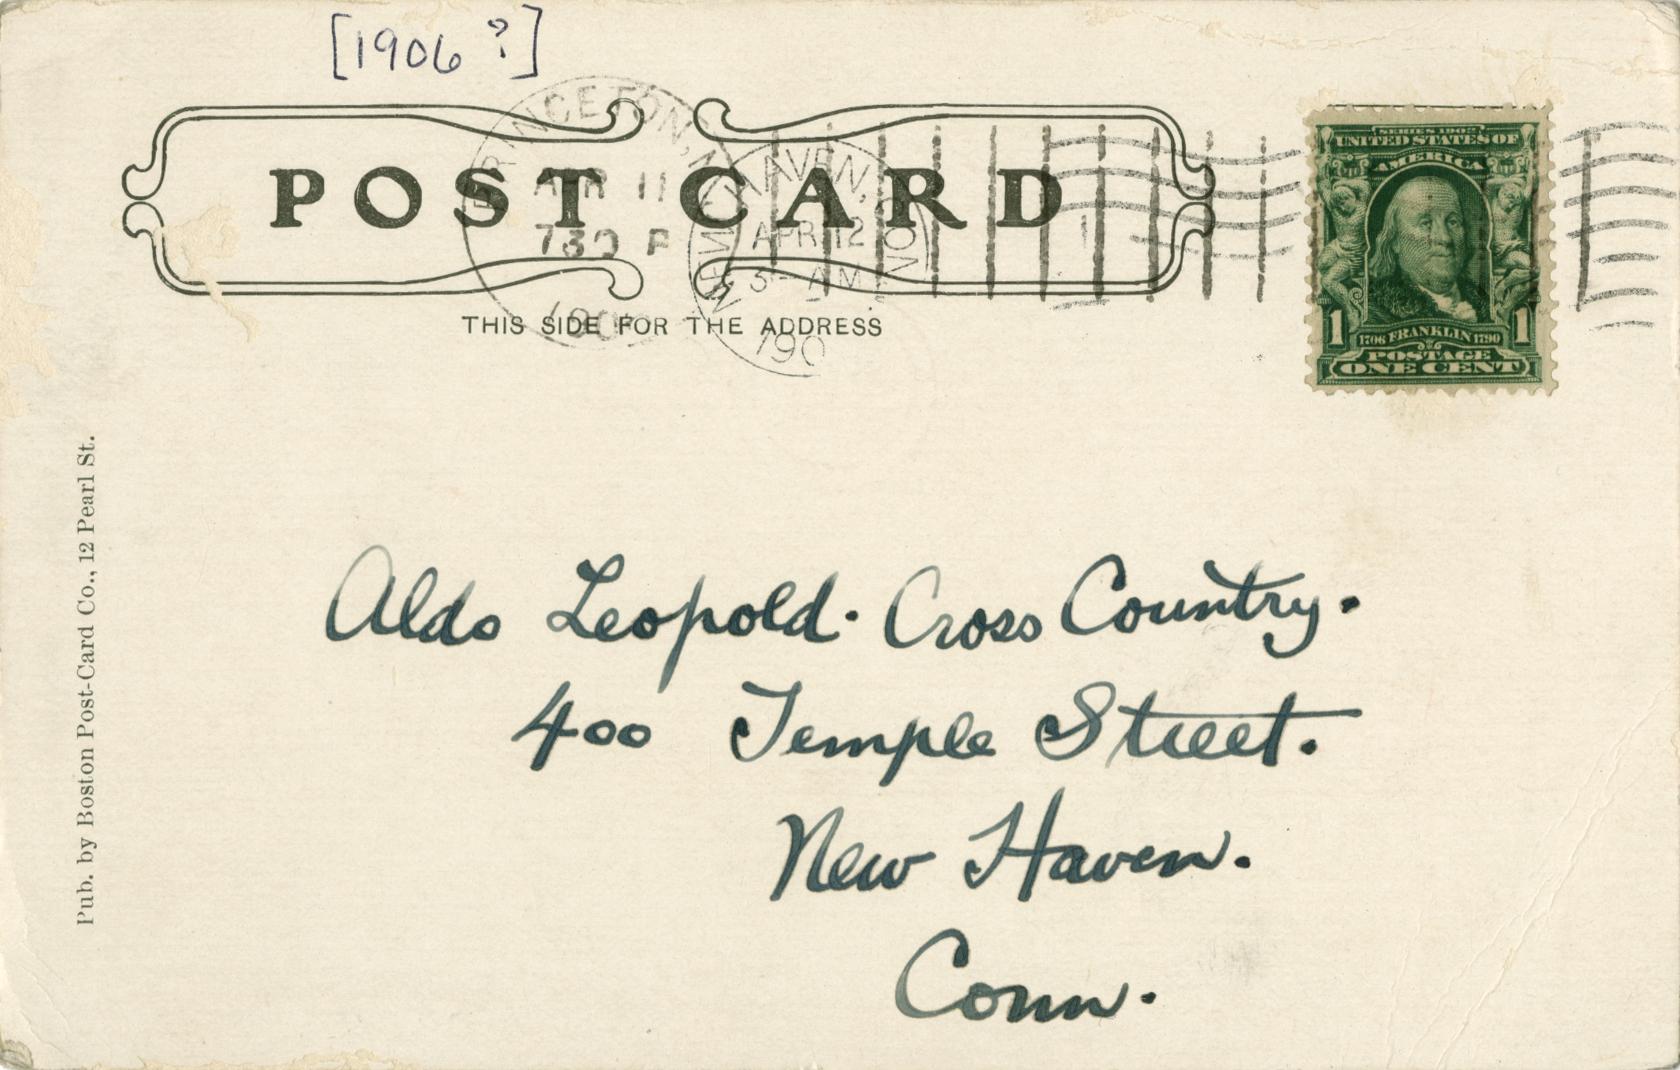 [1906 ?]
POST CARD
THIS SIDE FOR THE ADDRESS
PRINCETON, N
APR 11
730 P
190
NEW HAVEN, CONN
APR 12
3 - AM
190
SERIES 1902
UNITED STATES OF
AMERICA
1 1
1706 FRANKLIN 1790
POSTAGE
ONE CENT
Pub. by Boston Post-Card Co., 12 Pearl St.
Aldo Leopold. Cross Country.
400 Temple Street.
New Haven.
Conn.